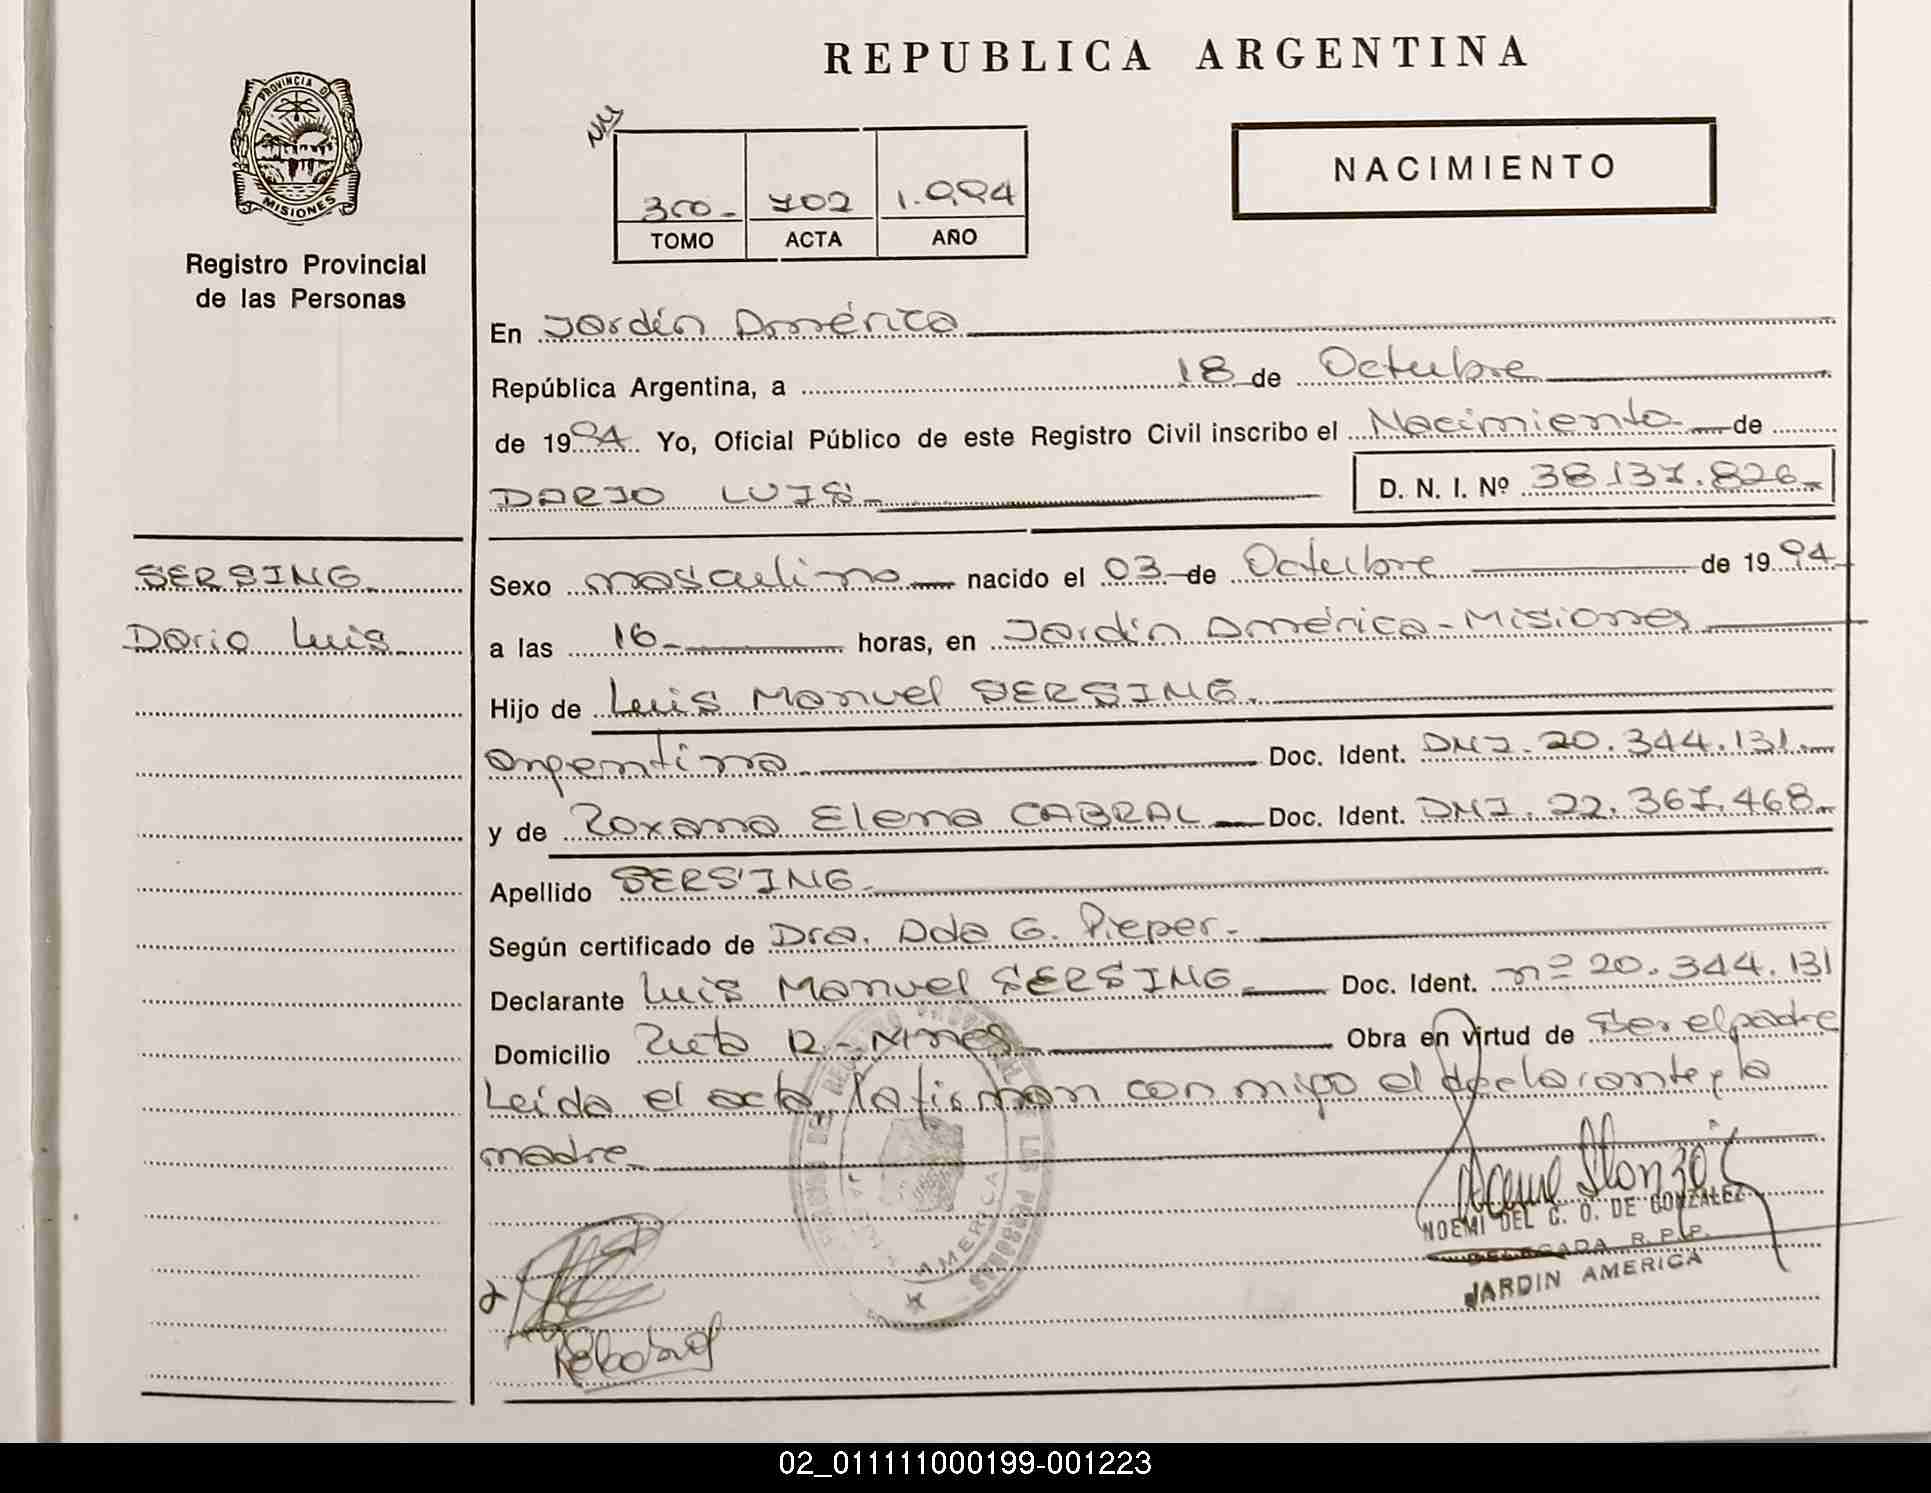 REPUBLICA ARGENTINA
PROVINCIA D
MISIONES
Registro Provincial
de las Personas
NACIMIENTO
300- 702 1.994
TOMO ACTA AÑO
En Jardín América
República Argentina, a 18 de Octubre
de 1994. Yo, Oficial Público de este Registro Civil inscribo el Nacimiento de
DARIO LUIS.- D. N. I. Nº 38.137.826.-
SERSING
Dario Luis
Sexo masculino nacido el 03 de Octubre de 1994
a las 16- horas, en Jardín América - Misiones
Hijo de Luis Manuel SERSING.
argentino Doc. Ident. DNI. 20.344.131.-
y de Roxana Elena CABRAL Doc. Ident. DNI. 22.367.468.-
Apellido SERSING.
Según certificado de Dra. Ada G. Pieper.-
Declarante Luis Manuel SERSING. Doc. Ident. nº 20.344.131
Domicilio Ruta 12 - Obra en virtud de Ser el padre
Leída el acta la firman con migo el declarante y la
madre.
NOEMI DEL C. O. DE GONZALEZ
DELEGADA R.P.P.
JARDIN AMERICA
AMERICA
RECabral
02_011111000199-001223